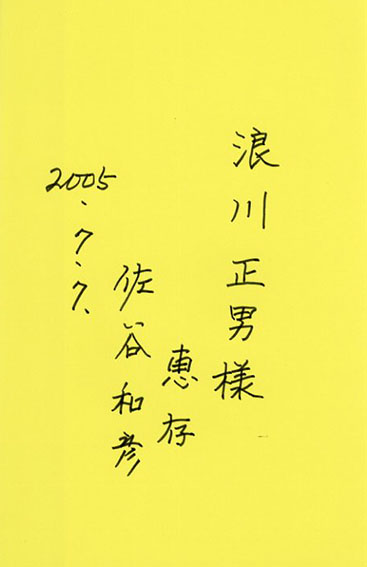 浪川正男様
恵存
佐谷和彦
2005.7.7.